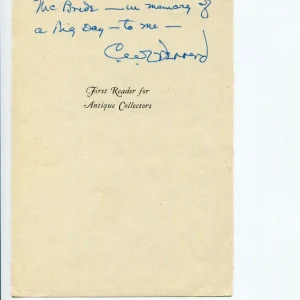 McBride — in memory of
a Big Day — to me —
First Reader for
Antique Collectors